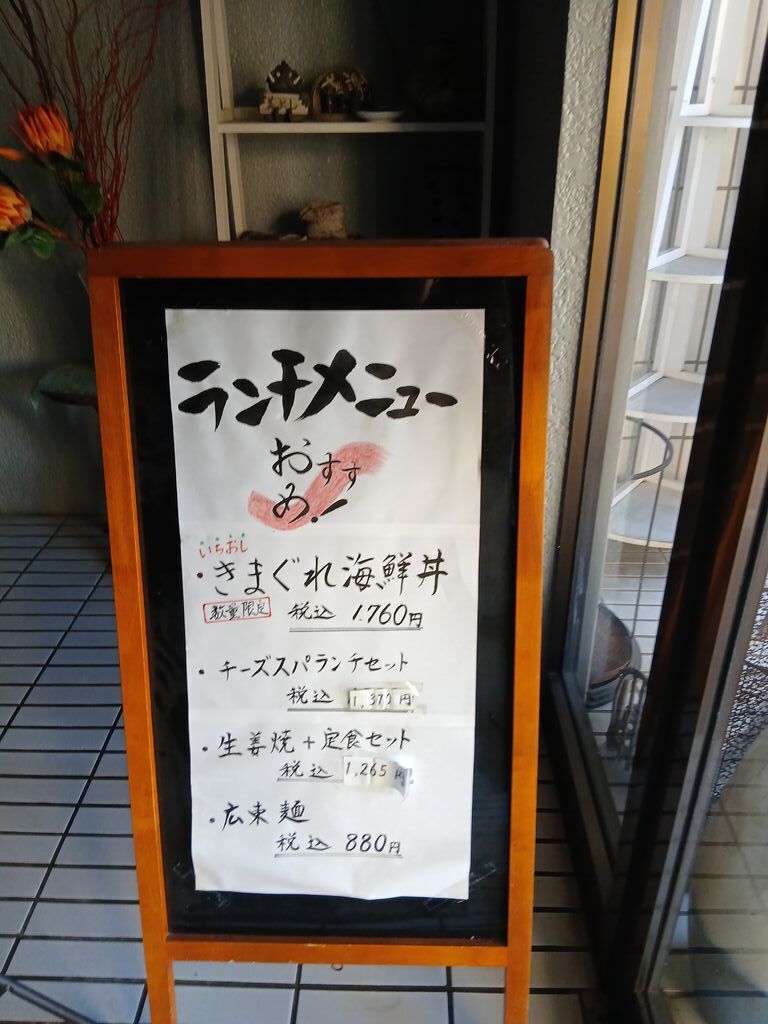 ランチメニュー
おすす
め!
いちおし
・きまぐれ海鮮丼
数量限定 税込 1.760円
・チーズスパランチセット
税込 円
・生姜焼+定食セット
税込 1,265円
・広東麺
税込 880円